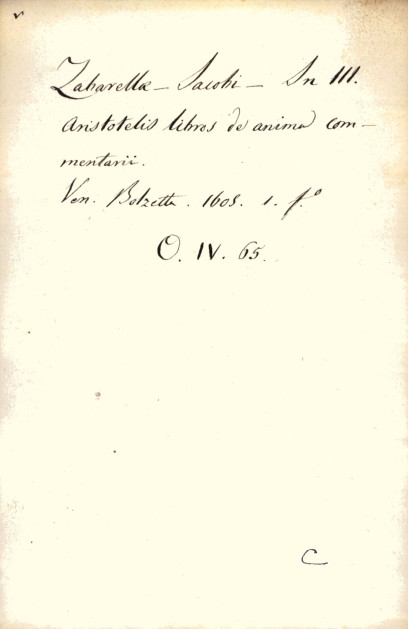 Zabarellæ – Jacobi – In III.
Aristotelis libros de anima com–
mentarii.
Ven. Bolzetta. 1605. 1. f.º
O. IV. 65.
C